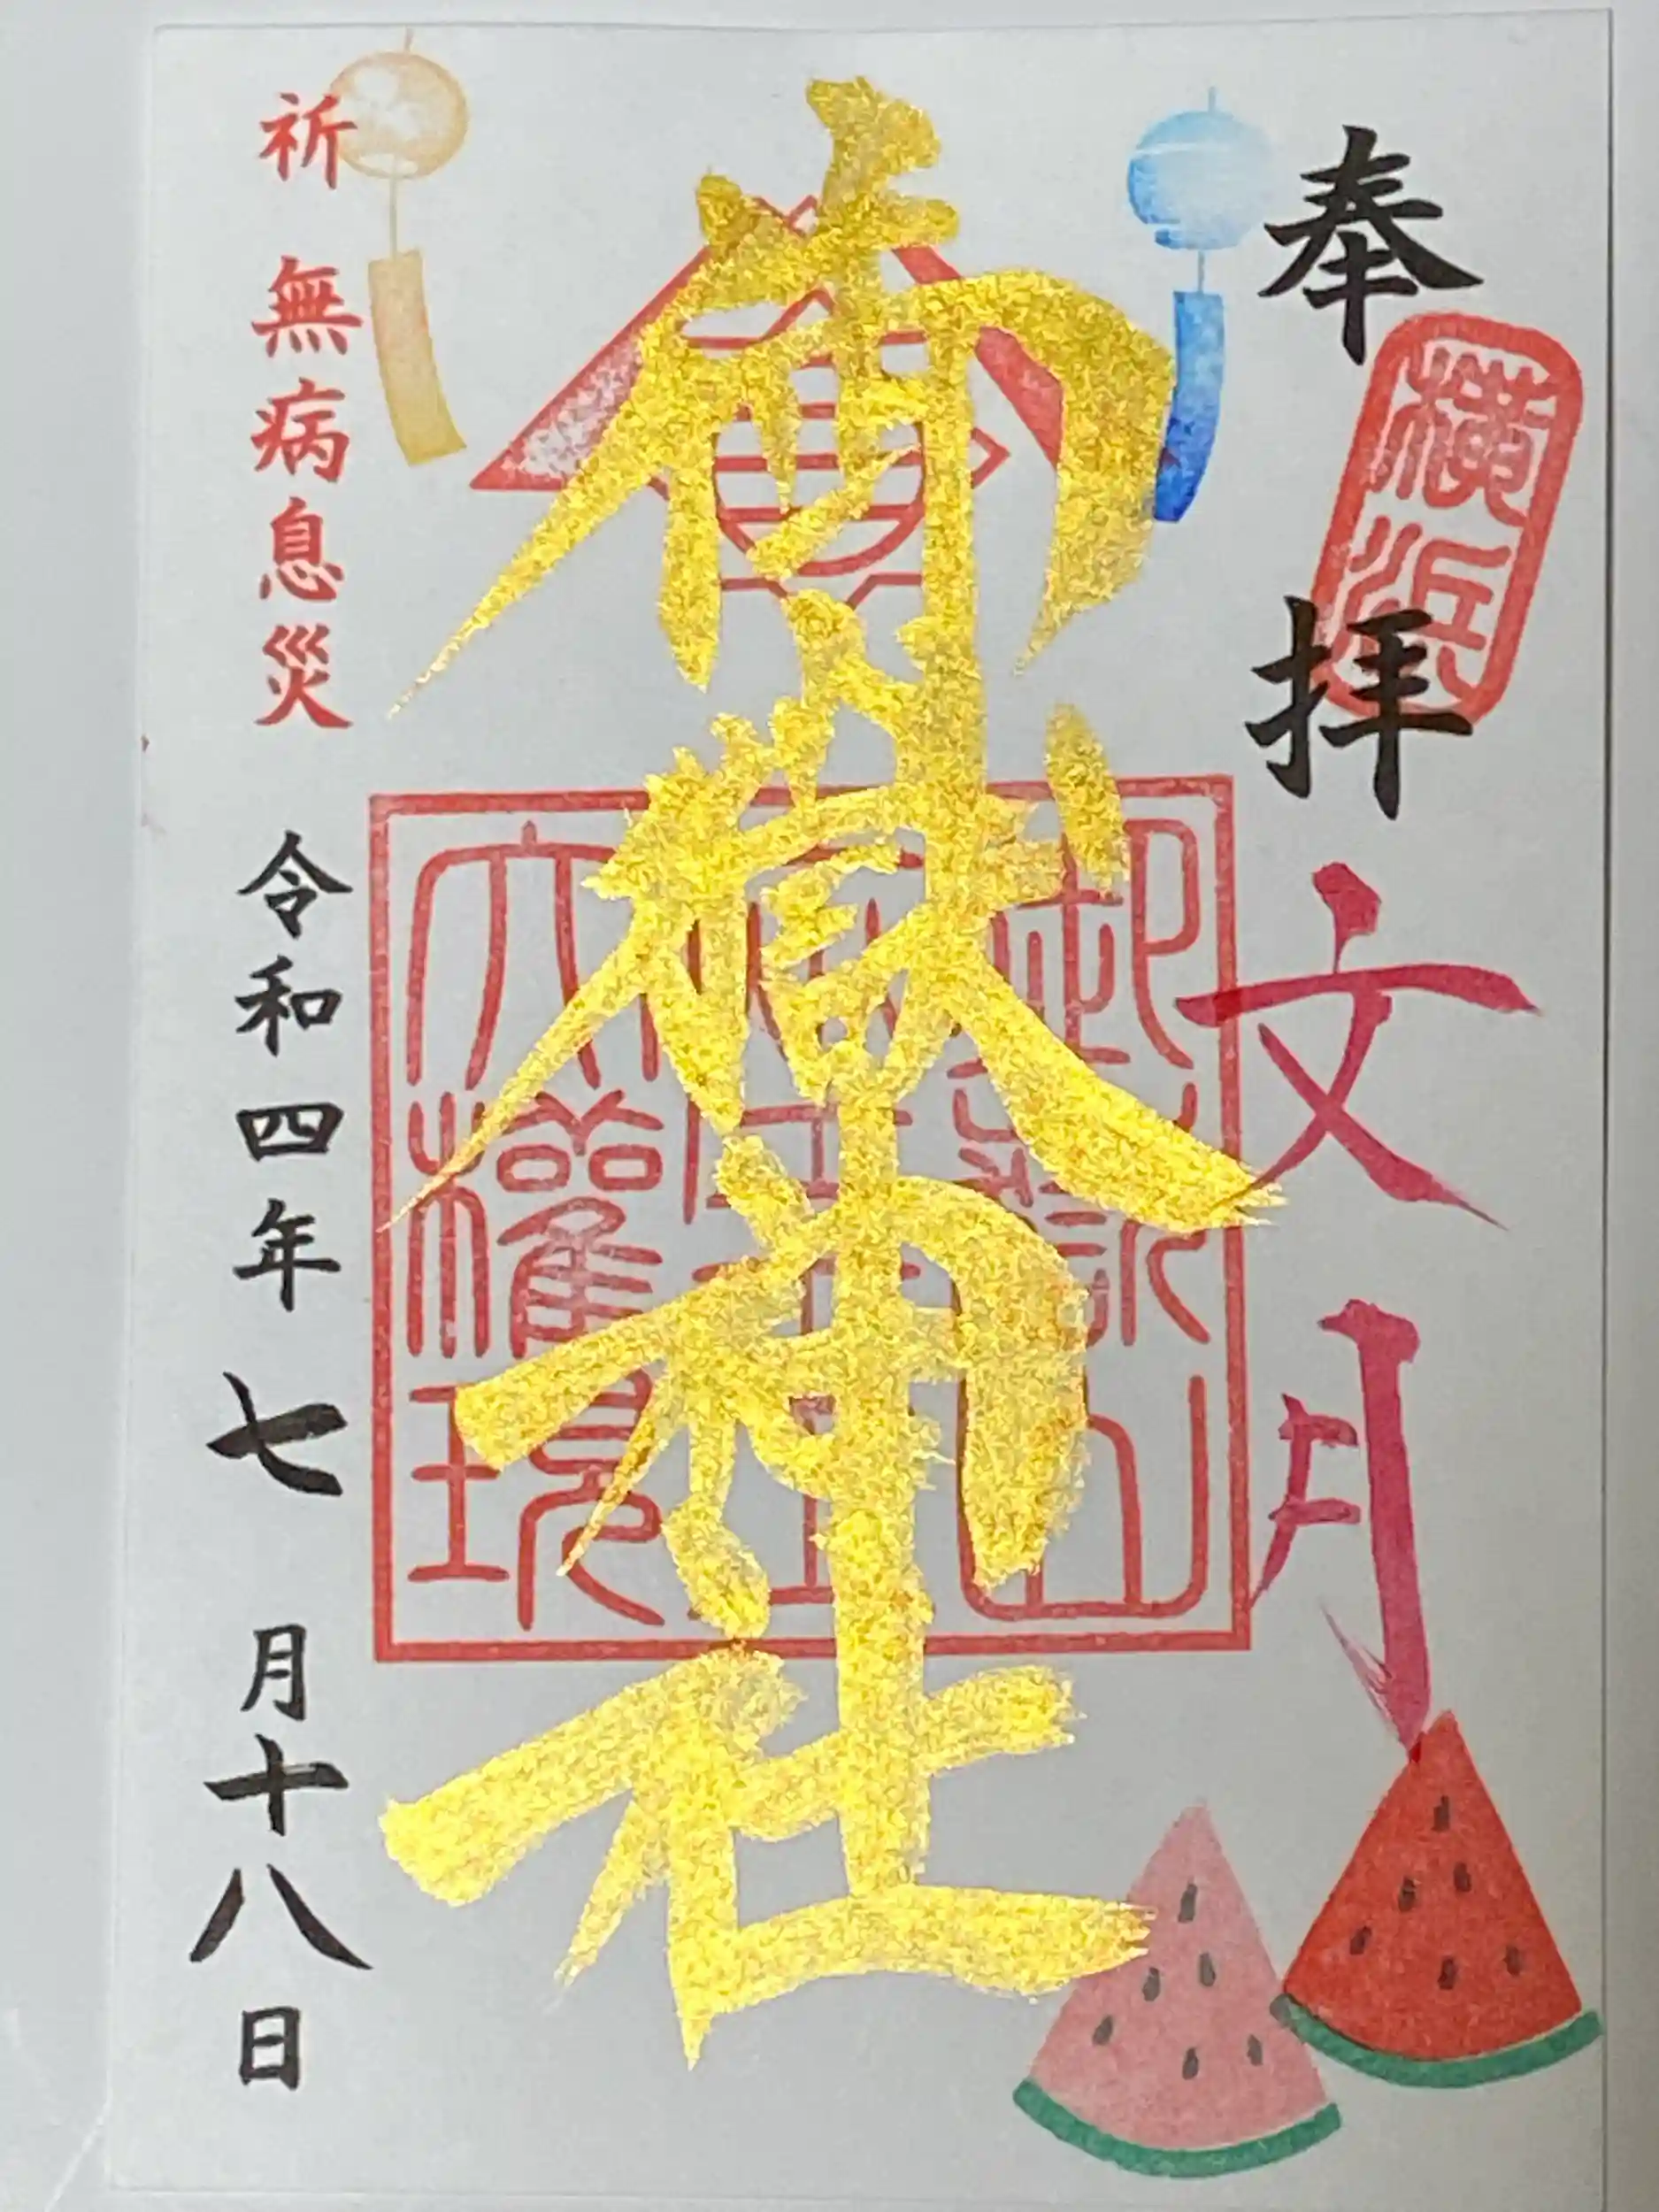 奉拝
横浜
文月
御嶽神社
大權現
祈 無病息災
令和四年七月十八日